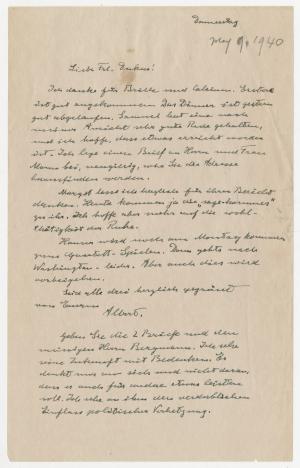 Donnerstag
May 9, 1940
Liebe Frl. Dukas!
Ich danke für Briefe und Calcium. Erstere
ist gut angekommen. Das Dinner ist gestern
gut abgelaufen. Samuel hat eine nach
meiner Ansicht sehr gute Rede gehalten,
und ich hoffe, dass etwas erreicht worden
ist. Ich lege einen Brief an Herrn und Frau
Mann bei, neugierig, wie Sie die Adresse
herausfinden werden.
Margot lasse ich herzlich für ihren Bericht
danken. Heute kommen ja die
zu ihr. Ich hoffe aber mehr auf die Wohl-
thätigkeit der Ruhe.
wird noch am Montag kommen
Quartett-Spielen. Dann gehts nach
Washington - leider. Aber auch dies wird
vorbeigehen.
Seid alle drei herzlich gegrüsst
von Eurem
Albert.
Geben Sie die 2 Briefe und den
Herrn Bergmann. Ich sehe
eine Zukunft mit Bedenken. Er
denkt nur an sich und nicht daran,
dass er auch für andre etwas leisten
soll. Ich sehe an ihm den verderblichen
Einfluss politischer Verhetzung.